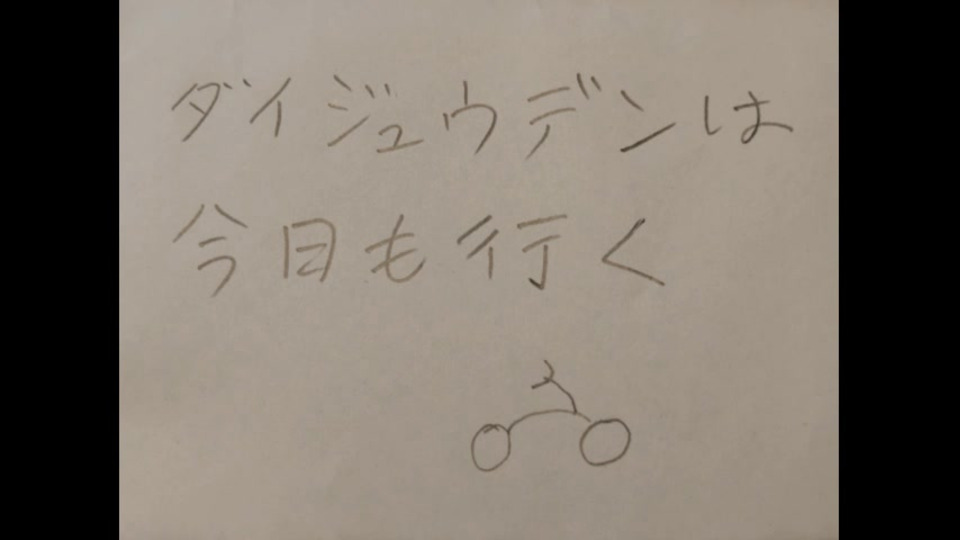 ダイジュウデンは
今日も行く